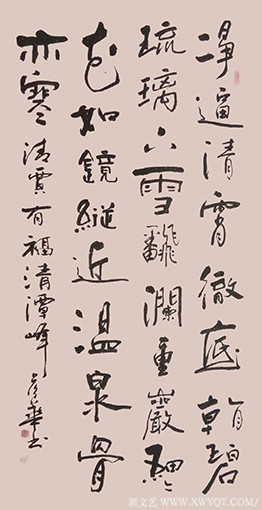 淨逼清霄徹底乾碧
琉璃雪飜瀾重巖細
花如鏡縱近温泉骨
亦寒 清賈有福清潭峰 華书
新文艺 WWW.XWYQT.COM